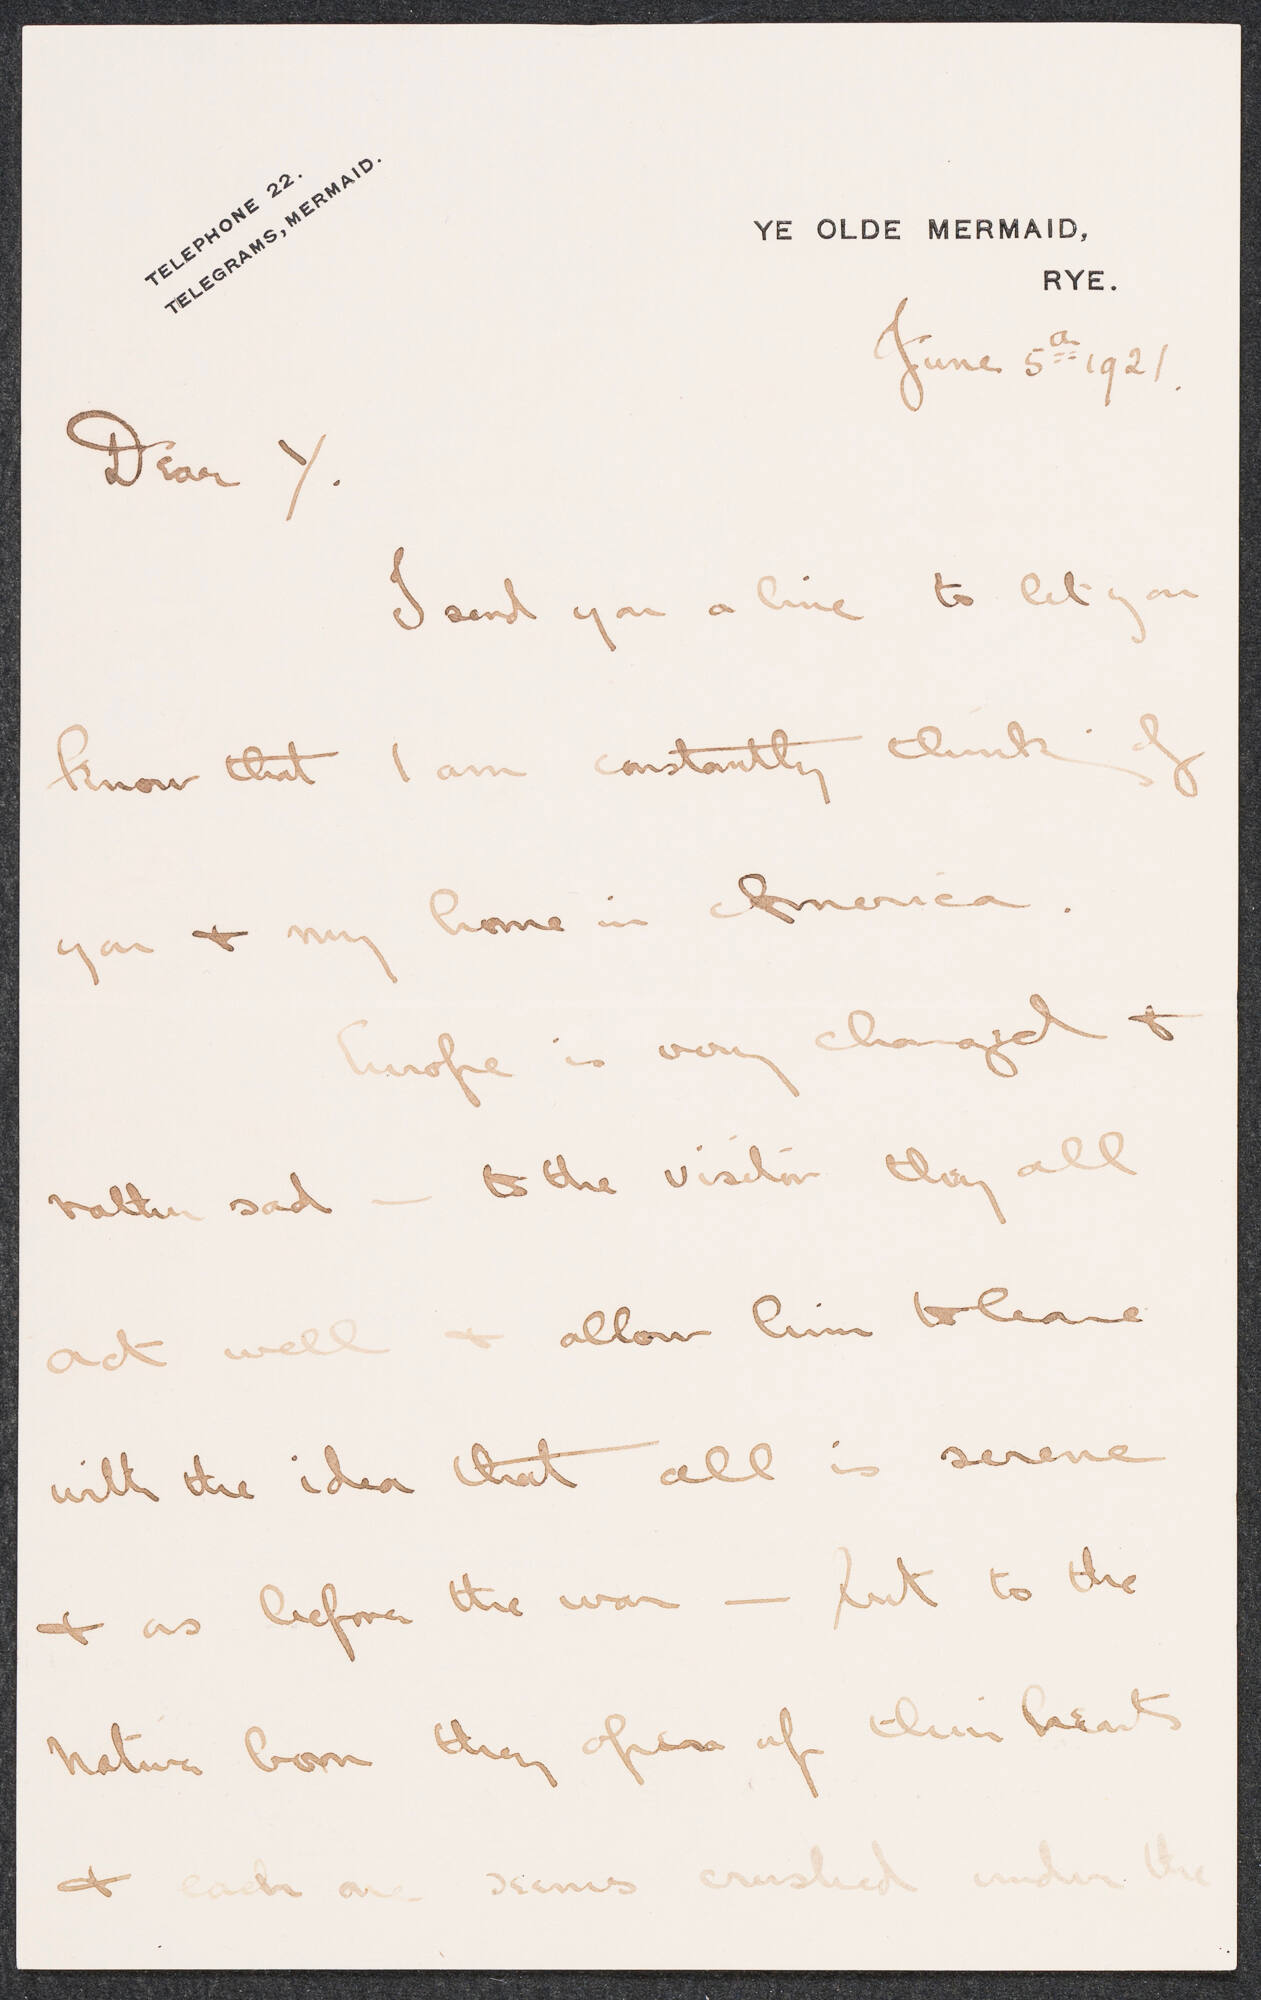 TELEPHONE 22.
TELEGRAMS, MERMAID.
YE OLDE MERMAID,
RYE.
June 5th 1921.
Dear Y.
I send you a line to let you
know that I am constantly thinking of
you & my home in America.
Europe is very changed &
rather sad — to the visitor they all
act well & allow him to leave
with the idea that all is serene
& as before the war — but to the
native born they open up their hearts
& each one seems crushed under the